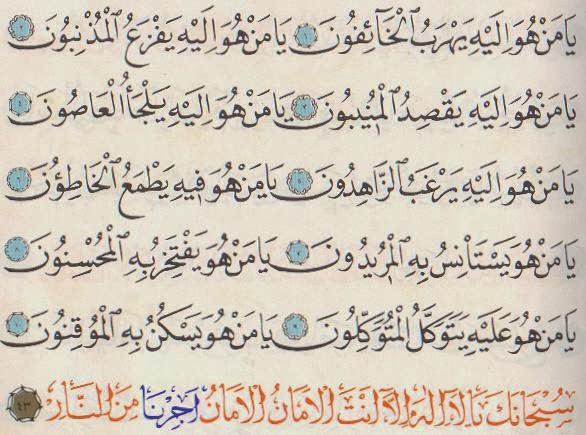 يَا مَنْ هُوَ اِلَيْهِ يَهْرَبُ الْخَآئِفُونَ ١ يَا مَنْ هُوَ اِلَيْهِ يَفْزَعُ الْمُذْنِبُونَ ٢
يَا مَنْ هُوَ اِلَيْهِ يَقْصِدُ الْمُنِيبُونَ ٣ يَا مَنْ هُوَ اِلَيْهِ يَلْجَأُ الْعَاصُونَ ٤
يَا مَنْ هُوَ اِلَيْهِ يَرْغَبُ الزَّاهِدُونَ ٥ يَا مَنْ هُوَ فِيهِ يَطْمَعُ الْخَاطِؤُنَ ٦
يَا مَنْ هُوَ يَسْتَاْنِسُ بِهِ الْمُرِيدُونَ ٧ يَا مَنْ هُوَ يَفْتَخِرُ بِهِ الْمُحْسِنُونَ ٨
يَا مَنْ هُوَ عَلَيْهِ يَتَوَكَّلُ الْمُتَوَكِّلُونَ ٩ يَا مَنْ هُوَ يَسْكُنُ بِهِ الْمُوقِنُونَ ١٠
سُبْحَانَكَ يَا لَا اِلٰهَ اِلَّا اَنْتَ الْاَمَانُ الْاَمَانُ اَجِرْنَا مِنَ النَّارِ ٤٣